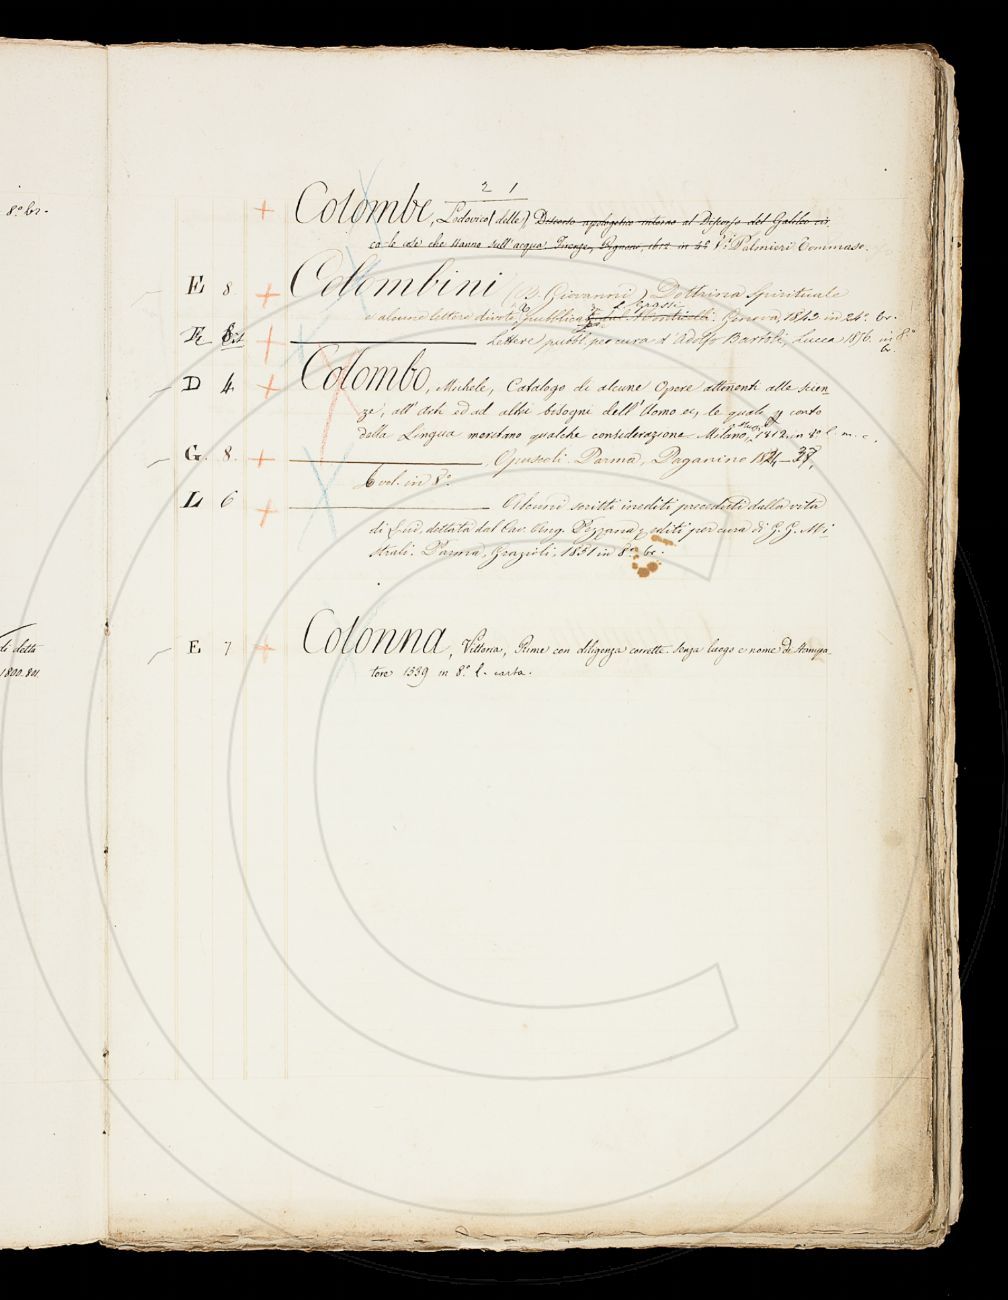 8.° br.
2 1
+ Colombe, Lodovico (delle) Discorso apologetico intorno al Discorso del Galileo cir.
ca le cose che stanno sull'acqua. Firenze, Pignoni, 1612 in 4° V. Palmieri Tommaso.
E 8 + Colombini (B. Giovanni) Dottrina Spirituale
e alcune lettere divote, pubblica Genova, 1843 in 24°. br.
E + Lettere pubbl. per cura d'Adolfo Bartoli, Lucca 1856. in 8°
br.
D 4 + Colombo, Michele, Catalogo di alcune Opere attinenti alle scien_
ze, all' Arti ed ad altri bisogni dell'Uomo ec, le quali p conto
della Lingua meritano qualche considerazione. Milano, 1812. in 8° l. m. c.
G. 8. + Opuscoli. Parma, Paganino 1824–37,
6 vol. in 8°.
L 6 + Alcuni scritti inediti preceduti dalla vita
di Lui, dettata dal Cav. Ang. Pezzana, editi per cura di G. G. Mi_
strali. Parma, Grazioli, 1851 in 8° br.
E 7 + Colonna, Vittoria, Rime con diligenza corrette. Senza luogo e nome di stampa_
tore 1539 in 8.° l. carta.
di detta
1800.801